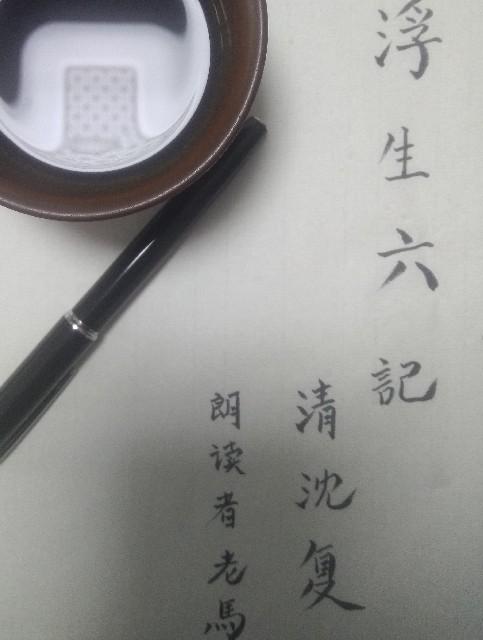 浮生六記
清沈复
朗读者老馬